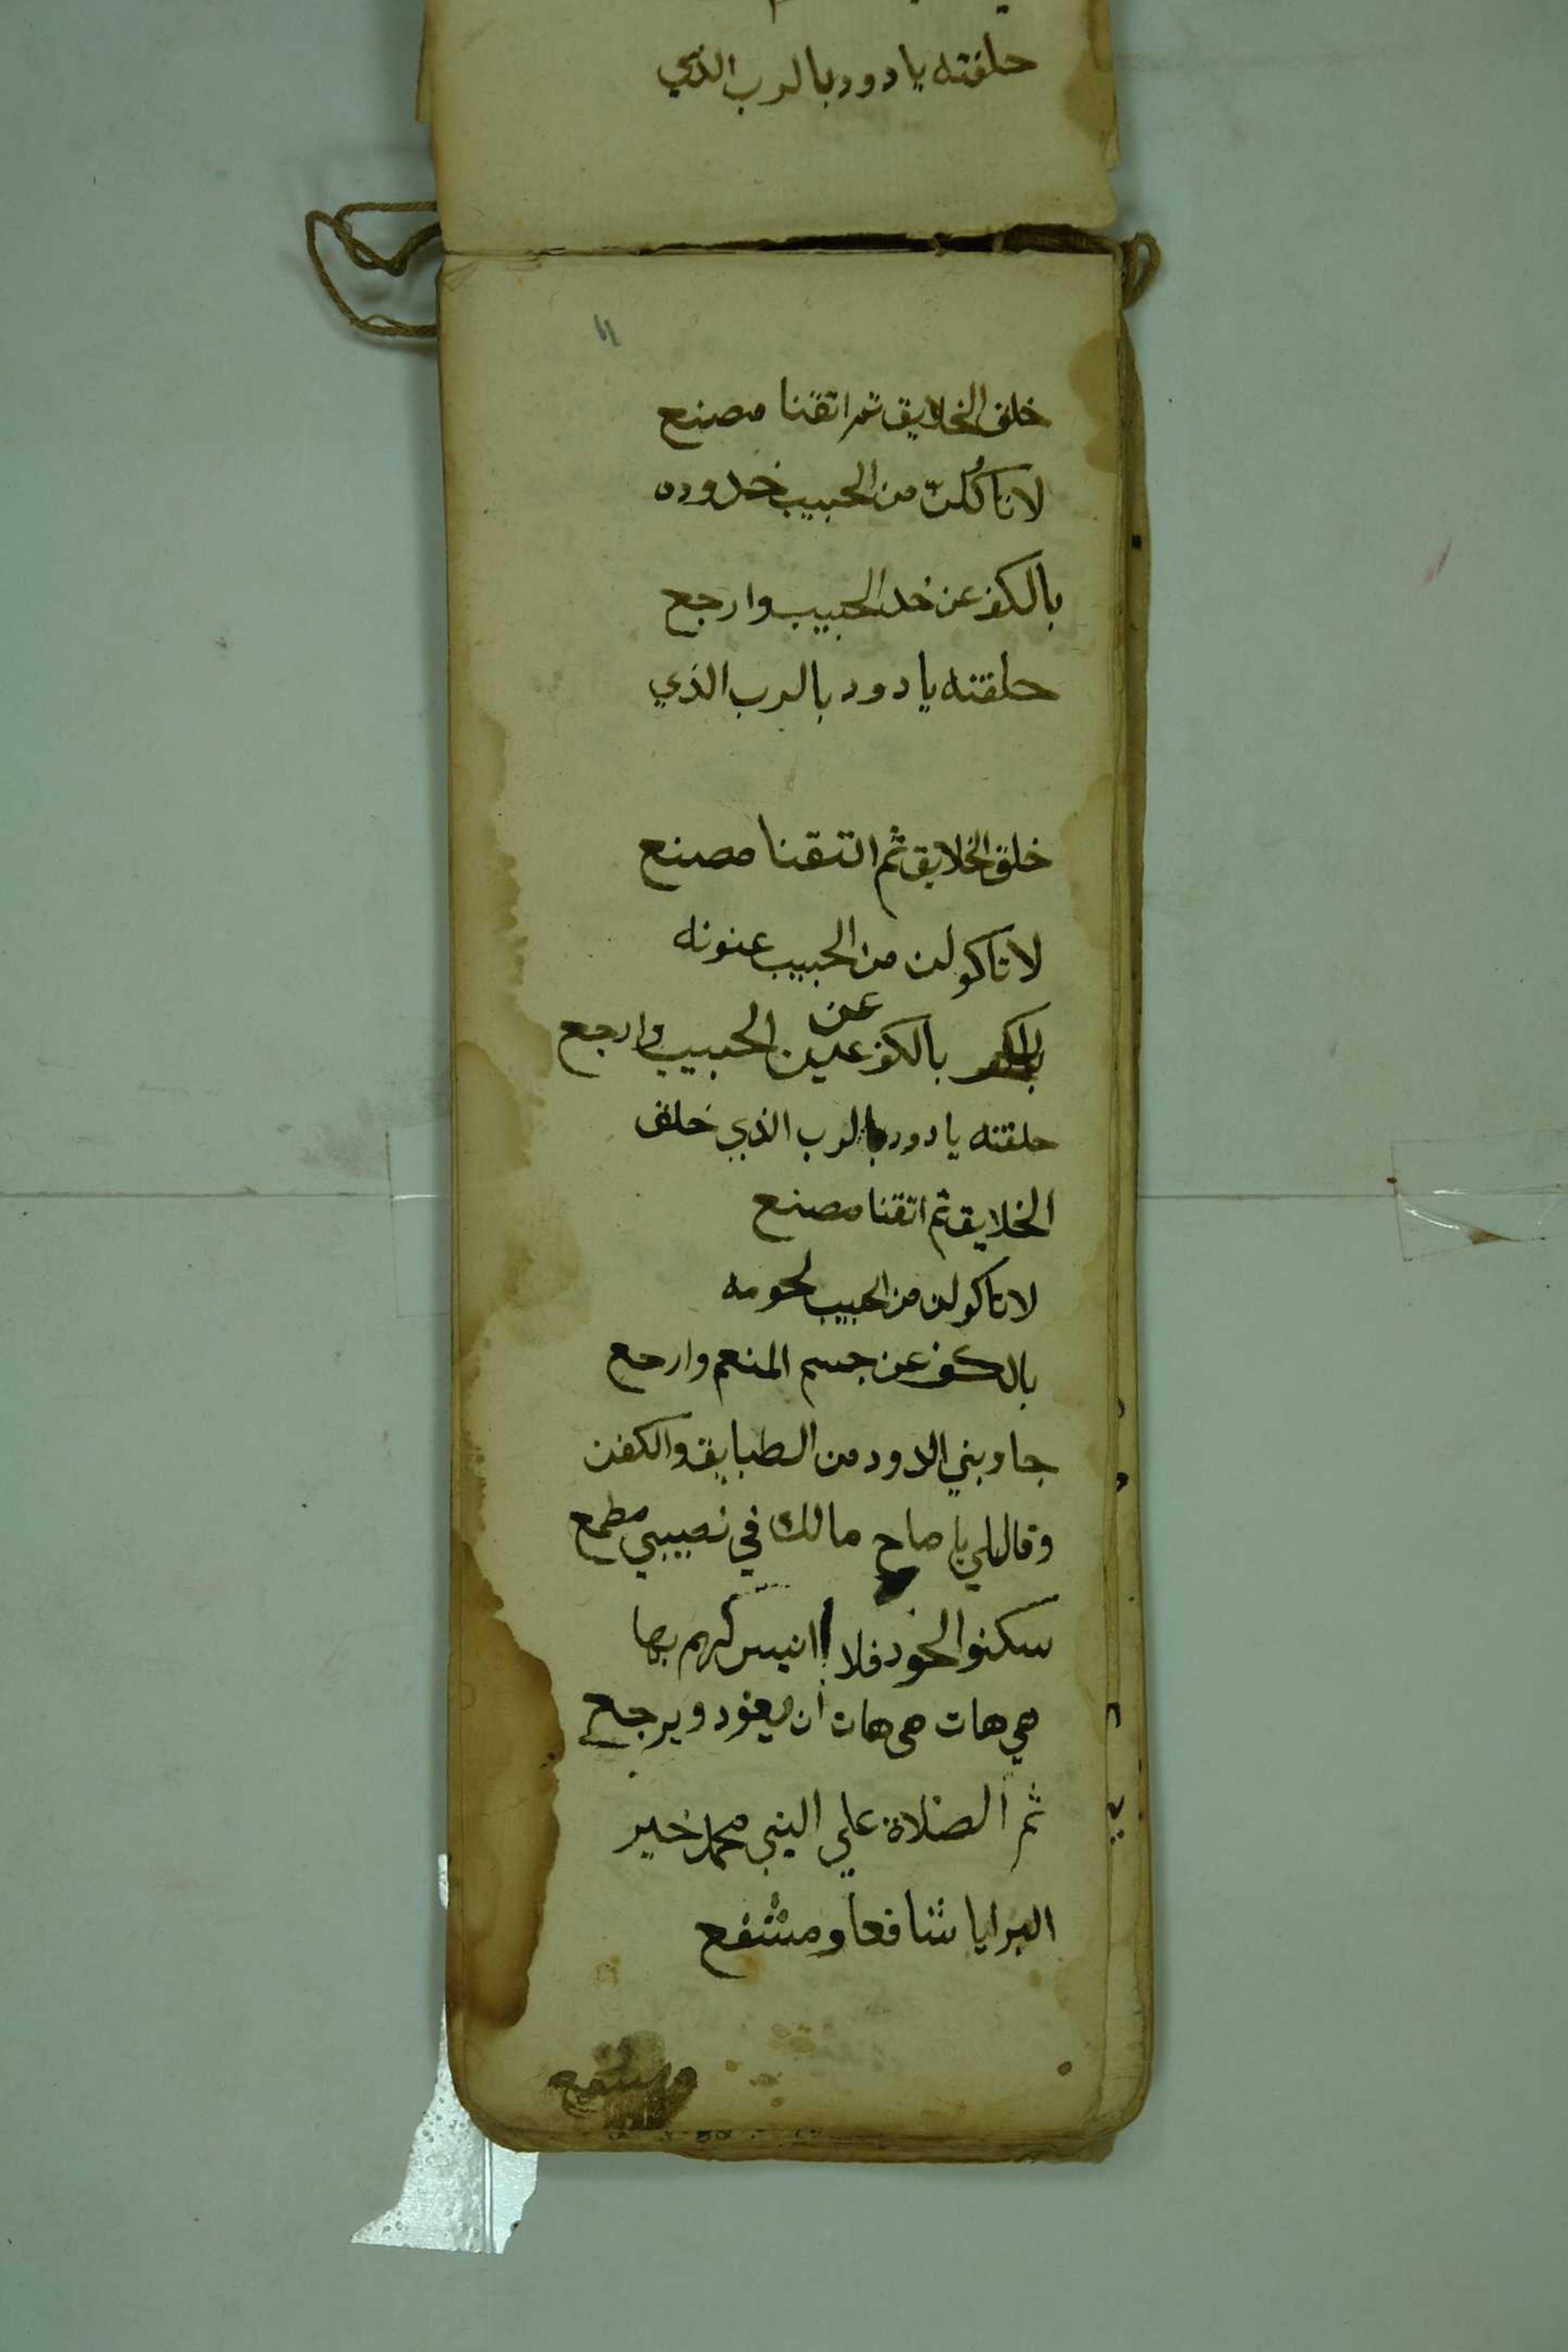 حلفته يا دود بالرب الذي
١١
خلق الخلايق ثم اتقنا مصنع
لا تاكُلنّ من الحبيب خدوده
بالكف عن خد الحبيب وارجع
حلفته يا دود بالرب الذي
خلق الخلايق ثم اتتقنا مصنع
لا تاكولن من الحبيب عنونه
بالكف عن عين الحبيب وارجع
حلفته يا دود بالرب الذي خلق
الخلايق ثم اتقنا مصنع
لا تاكولن من الحبيب لحومه
بالكف عن جسم المنعم وارجع
جاوبني الدود من الطبايق والكفن
وقاللي يا صاح مالك في نصيبي مطمع
سكنوا الخود فلا انيس لهم بها
هي هات هي هات ان يعود ويرجع
ثم الصلاة علي النبي محمد خير
البرايا شافعا ومشفع
ومشفع